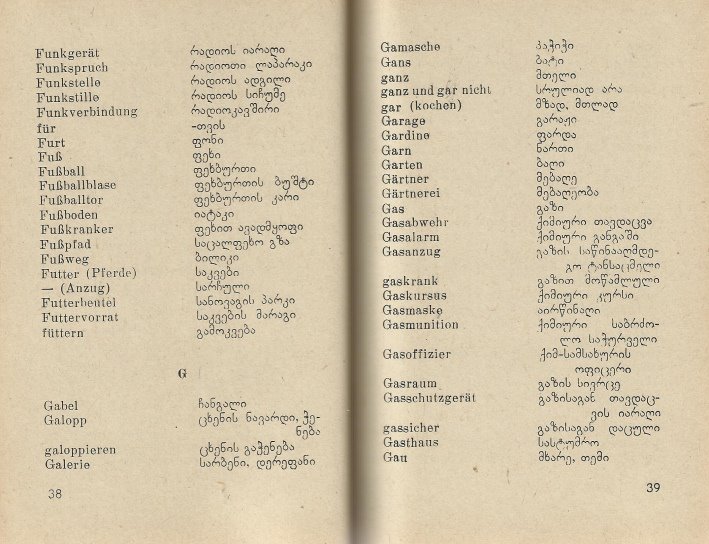 Funkgerät რადიოს იარაღი
Funkspruch რადიოთი ლაპარაკი
Funkstelle რადიოს ადგილი
Funkstille რადიოს სიჩუმე
Funkverbindung რადიოკავშირი
für -თვის
Furt ფონი
Fuß ფეხი
Fußball ფეხბურთი
Fußballblase ფეხბურთის ბუშტი
Fußballtor ფეხბურთის კარი
Fußboden იატაკი
Fußkranker ფეხით ავადმყოფი
Fußpfad საცალფეხო გზა
Fußweg ბილიკი
Futter (Pferde) საკვები
— (Anzug) სარჩული
Futterbeutel სანოვაგის პარკი
Futtervorrat საკვების მარაგი
füttern გამოკვება
G
Gabel ჩანგალი
Galopp ცხენის ნავარდი, ჭე-
ნება
galoppieren ცხენის გაჭენება
Galerie სარბენი, დერეფანი
38
Gamasche პაჭიჭი
Gans ბატი
ganz მთელი
ganz und gar nicht სრულიად არა
gar (kochen) მზად, მთლად
Garage გარაჟი
Gardine ფარდა
Garn ნართი
Garten ბაღი
Gärtner მებაღე
Gärtnerei მებაღეობა
Gas გაზი
Gasabwehr ქიმიური თავდაცვა
Gasalarm ქიმიური განგაში
Gasanzug გაზის საწინააღმდე-
გო ტანსაცმელი
gaskrank გაზით მოწამლული
Gaskursus ქიმიური კურსი
Gasmaske აირწინაღი
Gasmunition ქიმიური საბრძო-
ლო საჭურველი
Gasoffizier ქიმ-სამსახურის
ოფიცერი
Gasraum გაზის სივრცე
Gasschutzgerät გაზისაგან თავდაც-
ვის იარაღი
gassicher გაზისაგან დაცული
Gasthaus სასტუმრო
Gau მხარე, თემი
39